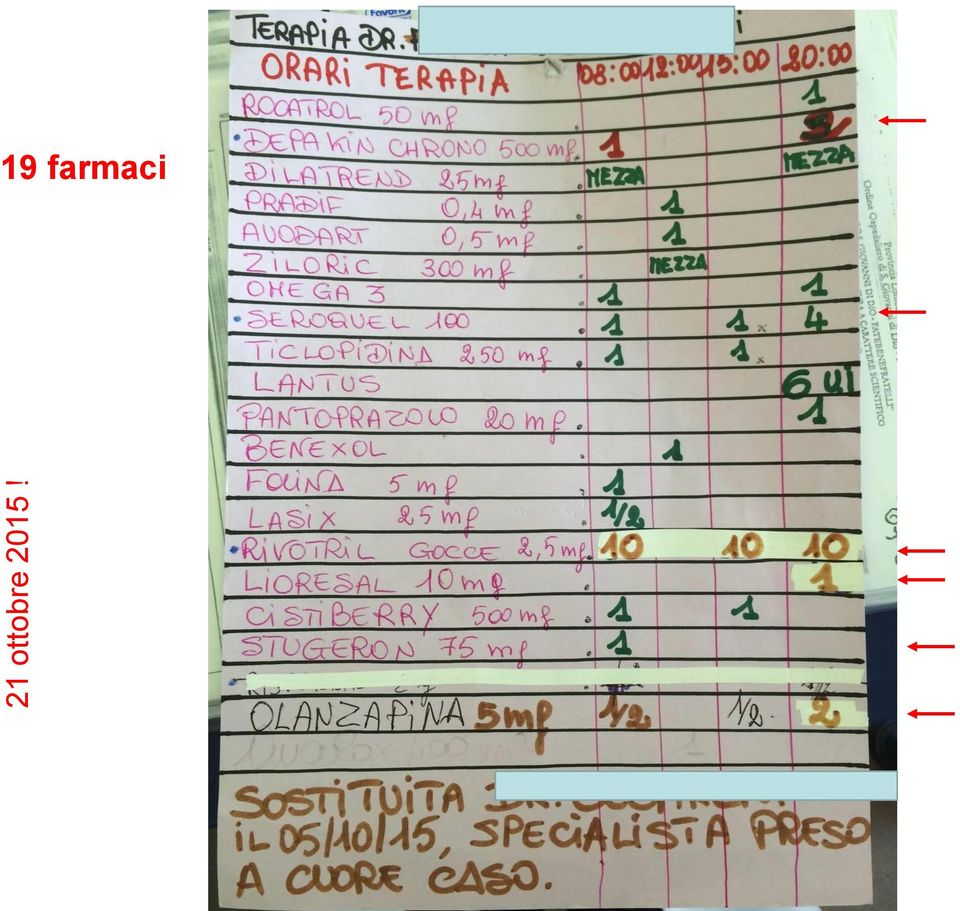 Favorit
TERAPIA DR.
ORARI TERAPIA 08:00 12:00 15:00 20:00
ROCATROL 50 mg 1
19 farmaci
• DEPAKIN CHRONO 500 mg. 1
DILATREND 25 mg . MEZZA MEZZA
PRADIF 0,4 mg . 1
AVODART 0,5 mg . 1
ZILORIC 300 mg . MEZZA
OMEGA 3 . 1 1
• SEROQUEL 100 . 1 1 x 4
TICLOPIDINA 250 mg . 1 1 x
LANTUS 6 UI
PANTOPRAZOLO 20 mg . 1
BENEXOL . 1
FOLINA 5 mg 1
LASIX 25 mg . 1/2
• RIVOTRIL GOCCE 2,5 mg. 10 10 10
LIORESAL 10 mg . 1
CISTIBERRY 500 mg . 1 1
STUGERON 75 mg . 1
OLANZAPINA 5mg 1/2 1/2 2
SOSTITUITA
IL 05/10/15, SPECIALISTA PRESO
A CUORE CASO.
21 ottobre 2015 !
Provincia
Ordine Ospedaliero di S. Giovanni di
GIOVANNI DI DIO - FATEBENEFRATELLI"
A CARATTERE SCIENTIFICO